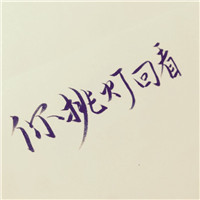 你挑灯回看